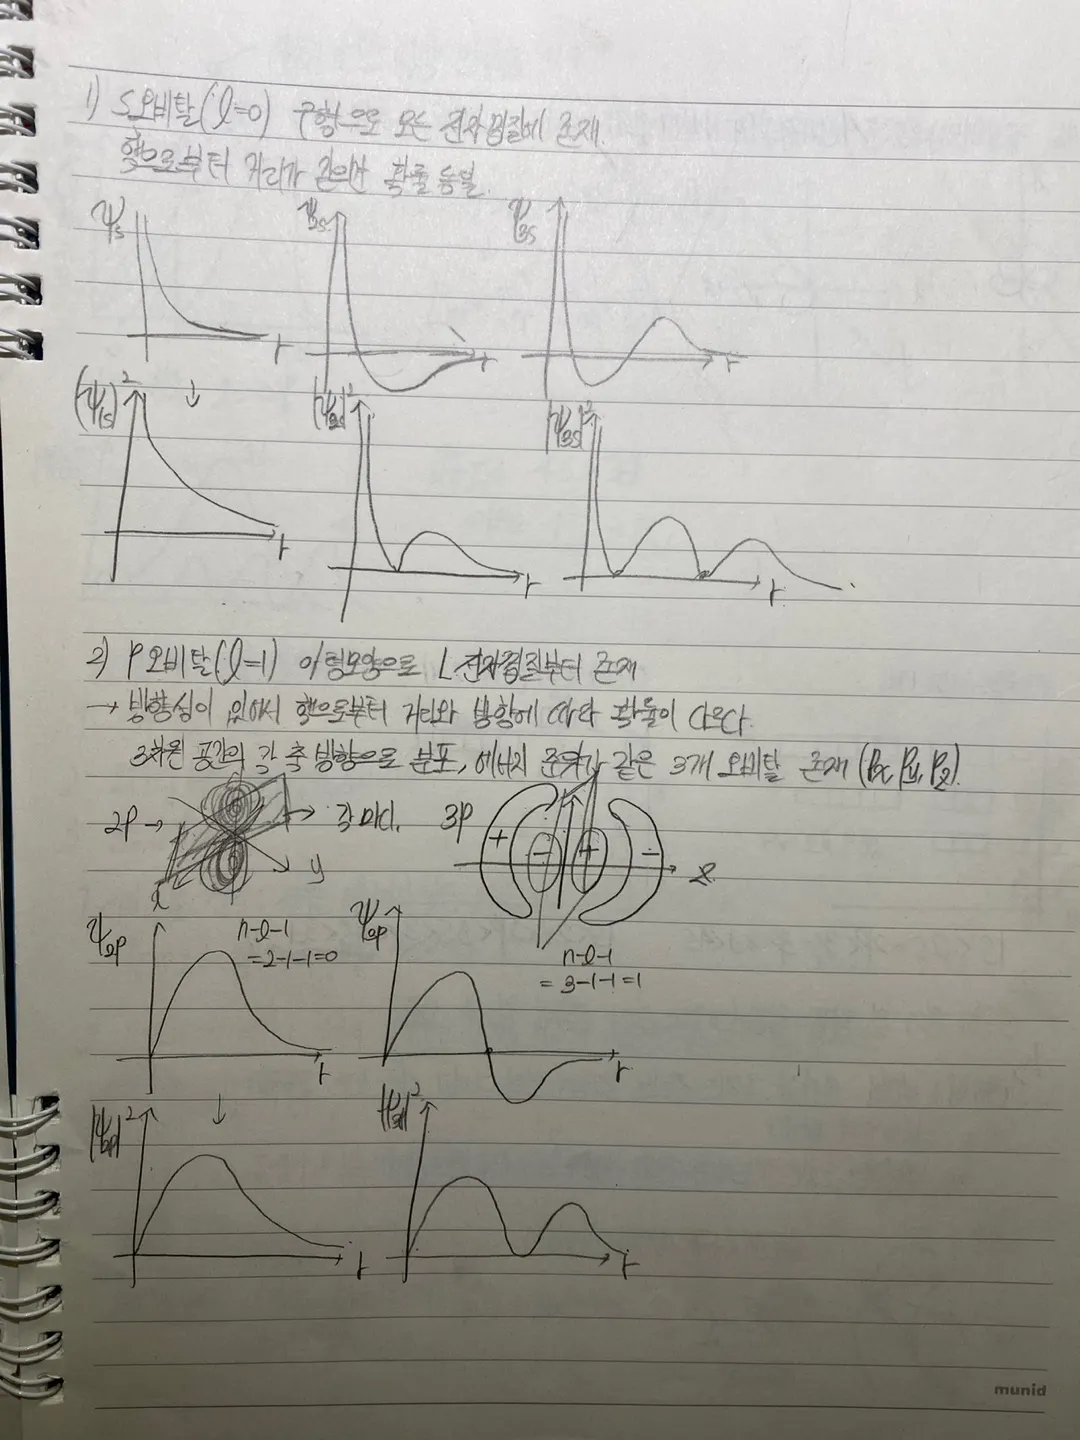 1) S오비탈(l=0) 구형으로 모든 전자껍질에 존재.
핵으로부터 거리가 같으면 확률 동일.
ψ1s ψ2s ψ3s
r r r
|ψ1s|² ↓ |ψ2s|² |ψ3s|²
r r r
2) P오비탈(l=1) 아령모양으로 L전자껍질부터 존재
→ 방향성이 있어서 핵으로부터 거리와 방향에 따라 확률이 다르다.
3차원 공간의 각 축 방향으로 분포, 에너지 준위가 같은 3개 오비탈 존재 (Px, Py, Pz).
2P → → 각마디. 3P + - + -
x y x
ψ2p n-l-1
=2-1-1=0
n-l-1
= 3-1-1=1
r r
|ψ2p|² ↓ |ψ3p|²
r r
munid